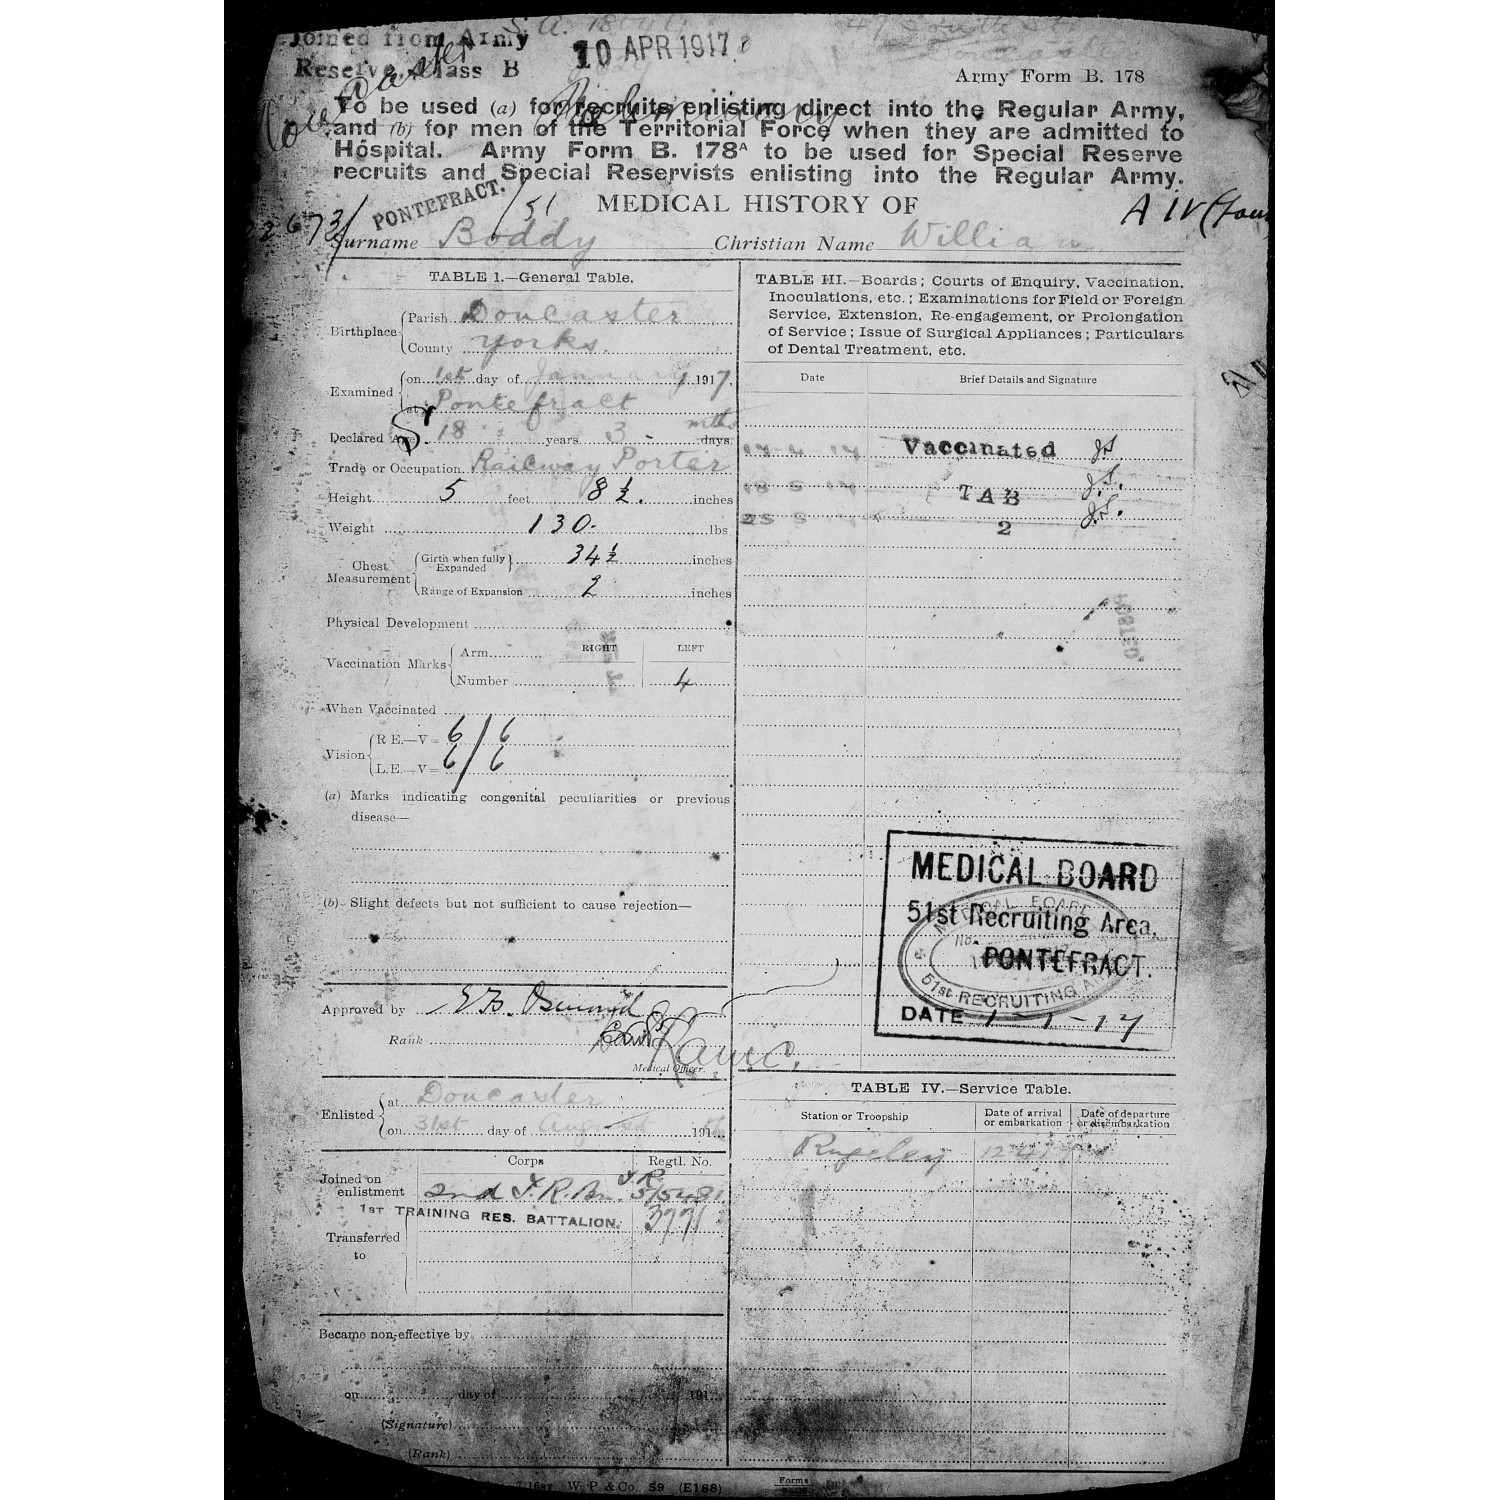 Joined from Army
Reserve, Class B
10 APR 1917
47 South St
Doncaster
Army Form B. 178
To be used (a) for recruits enlisting direct into the Regular Army,
and (b) for men of the Territorial Force when they are admitted to
Hospital. Army Form B. 178A to be used for Special Reserve
recruits and Special Reservists enlisting into the Regular Army.
PONTEFRACT.
/51
MEDICAL HISTORY OF
A IV
Surname Boddy Christian Name William
TABLE I.—General Table.
Birthplace Parish Doncaster
County Yorks.
Examined on 1st day of January 1917.
at Pontefract
Declared Age 18 years 3 - mths days.
Trade or Occupation Railway Porter
Height 5 feet 8 ½. inches
Weight 130. lbs.
Chest Measurement Girth when fully Expanded 34 ½ inches
Range of Expansion 2 inches
Physical Development
Vaccination Marks Arm RIGHT LEFT
Number 4
When Vaccinated
Vision R.E.—V= 6/6
L.E.—V= 6/6
(a) Marks indicating congenital peculiarities or previous
disease—
(b) Slight defects but not sufficient to cause rejection—
Approved by
Rank
R.A.M.C.
Medical Officer.
Enlisted at Doncaster
on 31st day of August 191
Corps Regtl. No.
Joined on enlistment 2nd T.R. Bn. T.R. 5/5481
1ST TRAINING RES. BATTALION. 3771
Transferred to
Became non-effective by
on day of 191
(Signature)
(Rank)
TABLE III.—Boards; Courts of Enquiry, Vaccination,
Inoculations, etc.; Examinations for Field or Foreign
Service, Extension, Re-engagement, or Prolongation
of Service; Issue of Surgical Appliances; Particulars
of Dental Treatment, etc.
Date Brief Details and Signature
17 4 17 Vaccinated J.S.
18 5 17 TAB J.S.
25 5 17 2 J.S.
MEDICAL BOARD
51st Recruiting Area,
PONTEFRACT.
DATE 1-1-17
MEDICAL BOARD
51st RECRUITING AREA
TABLE IV.—Service Table.
Station or Troopship Date of arrival or embarkation Date of departure or disembarkation
Rugeley 12 4 17
W. P. & Co. 59 (E188)
Forms